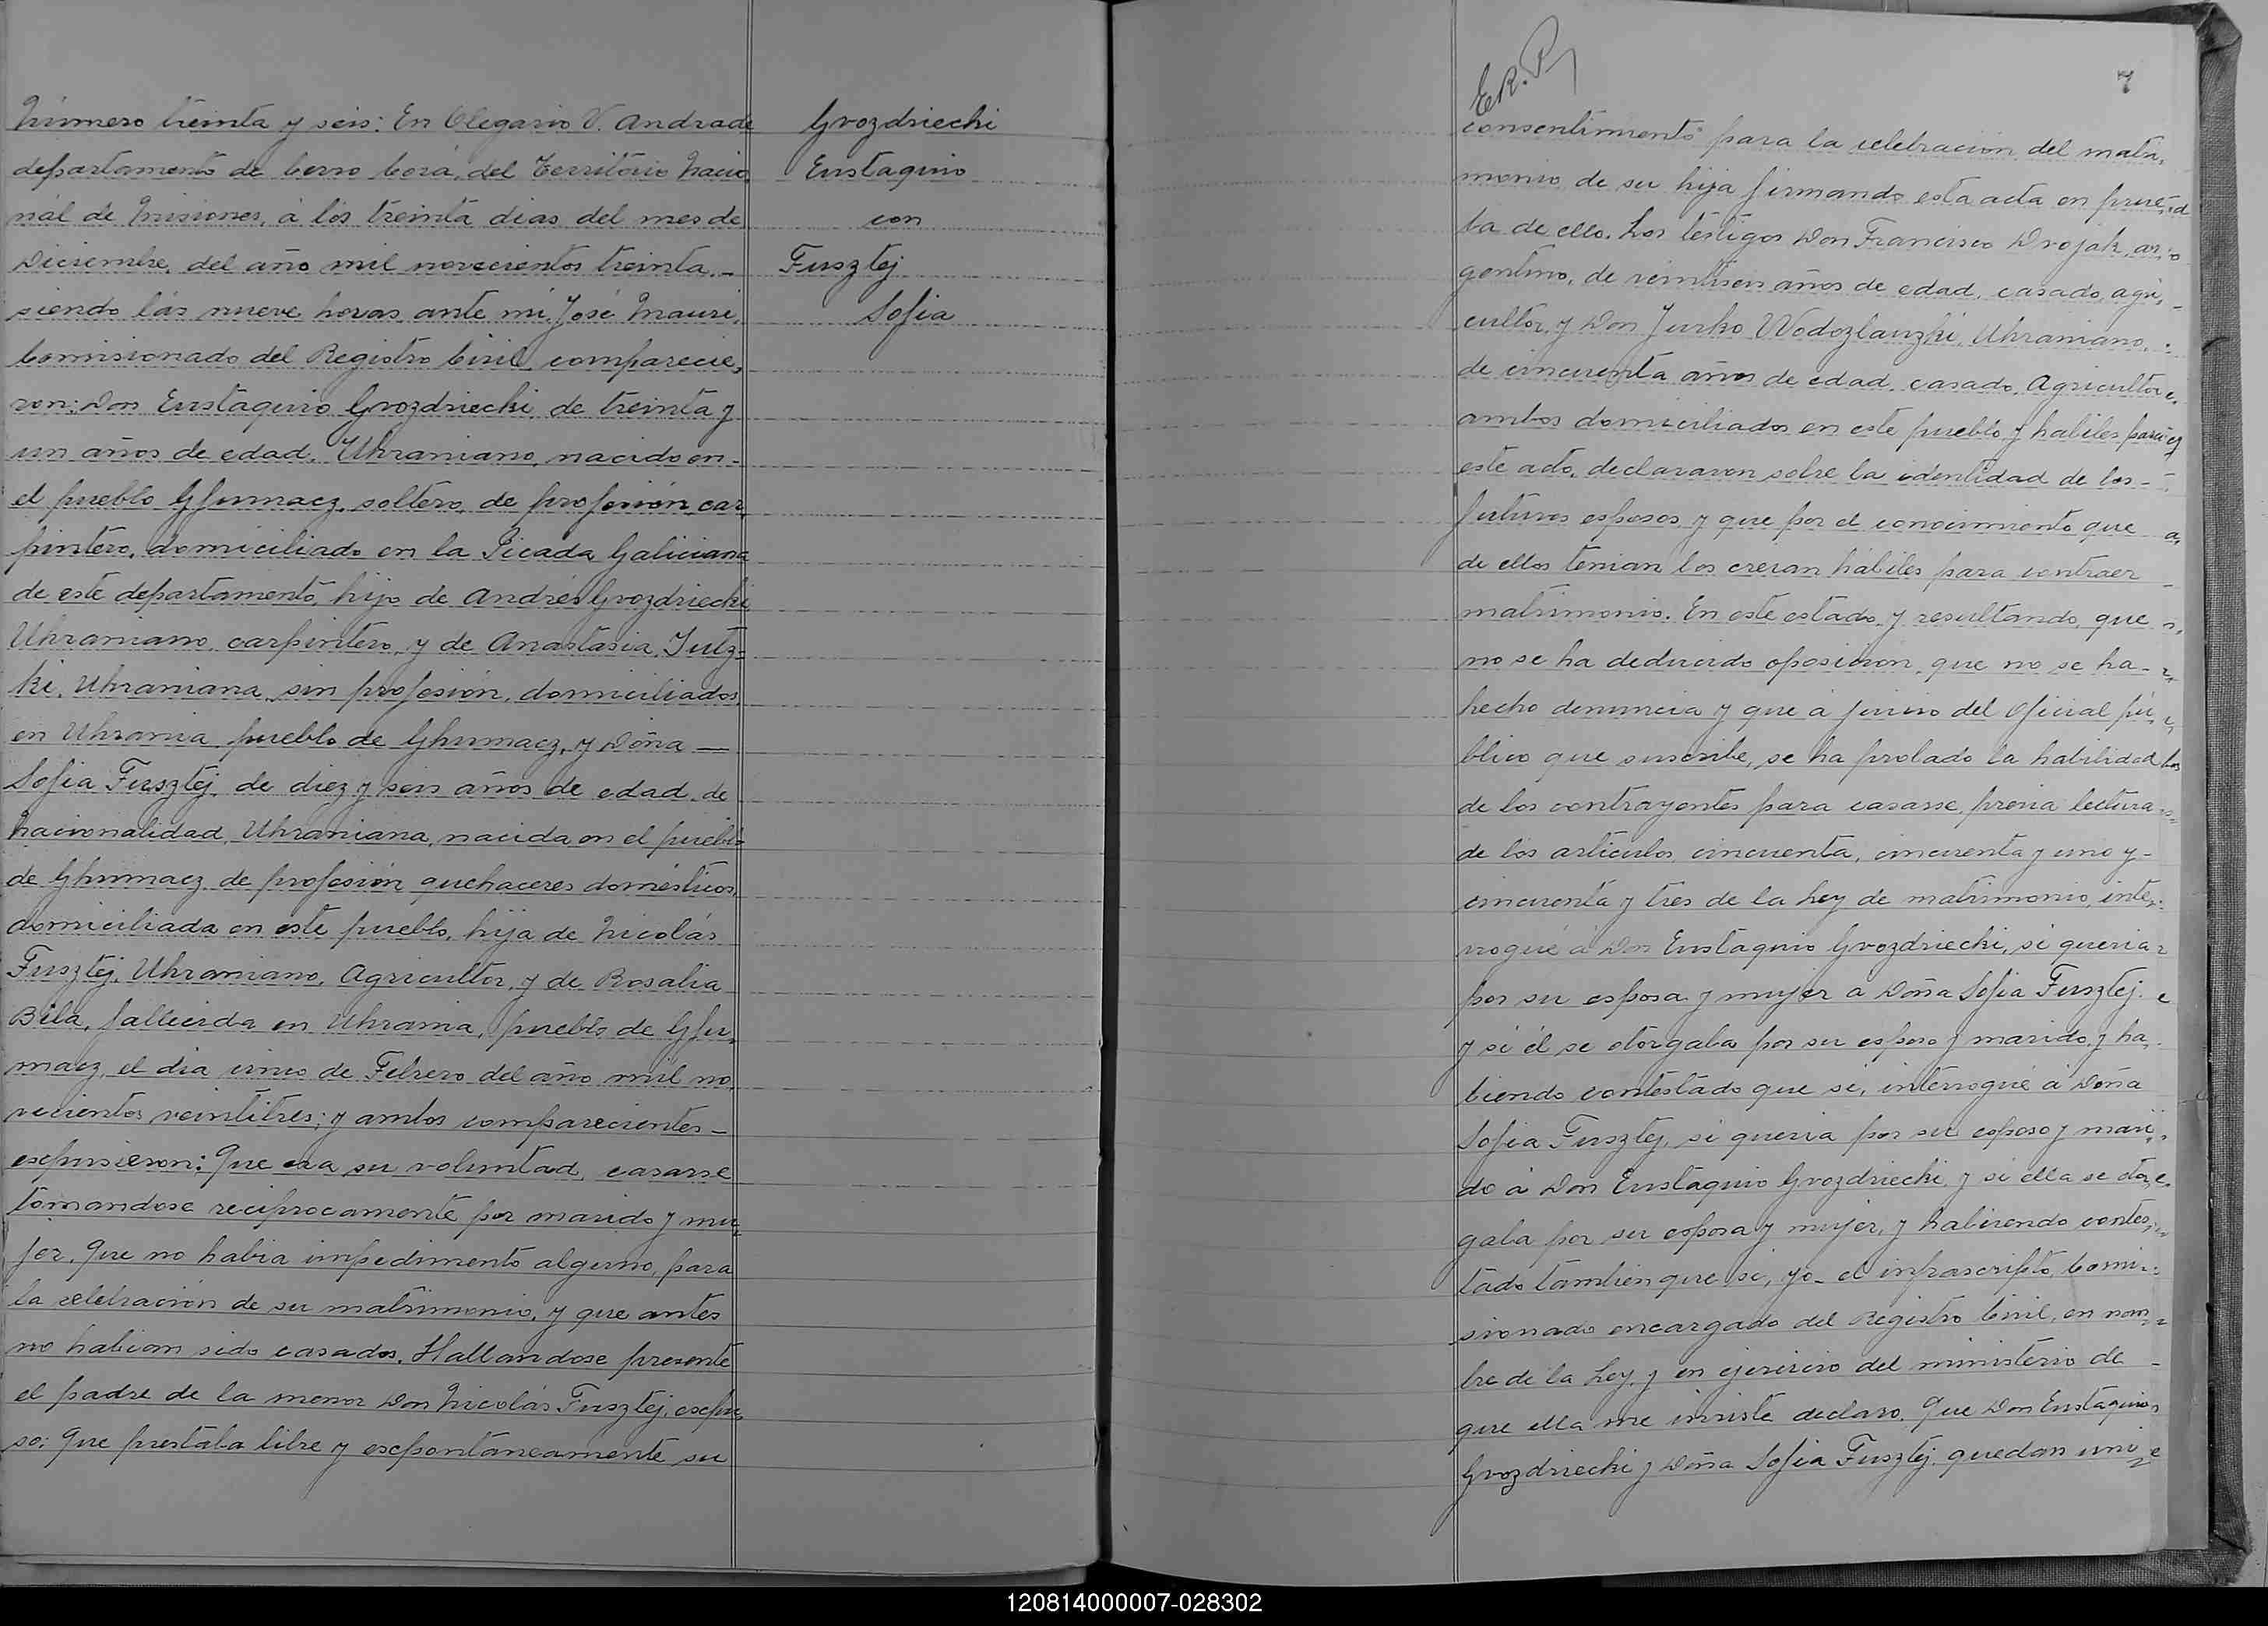 Número treinta y seis: En Olegario V. Andrade
departamento de Cerro Corá, del Territorio Nacio,
nál de Misiones, á los treinta dias del mes de
Diciembre, del año mil novecientos treinta.-
siendo lás nueve horas, ante mí, José Mauri,
Comisionado del Registro Civil, comparecie,
ron: Don Eustaquio Gvozdriecki de treinta y
un años de edad, Ukraniano, nacido en-
el pueblo soltero, de profesión car,
pintero, domiciliado en la Picada Galiciana
de este departamento, hijo de Andrés Gvozdriecki
Ukraniano carpintero, y de Anastasia
Ukraniana, sin profesión, domiciliados,
en Ukrania pueblo de y Doña —
Sofia Fusztej, de diez y seis años de edad, de
nacionalidad, Ukraniana, nacida en el pueblo
de de profesión quehaceres domésticos,
domiciliada en este pueblo, hija de Nicolás
Fusztej, Ukraniano, Agricultor, y de Rosalia
Bila, fallecida en Ukrania, pueblo de
el dia cinco de Febrero del año mil no,
vecientos veintitres; y ambos comparecientes-
expusieron: Que era su voluntad, casarse
tomandose reciprocamente por marido y mu,
jer, Que no habia impedimento alguno, para
la celebración de su matrimonio, y que antes
no habian sido casados, Hallandose presente
el padre de la menor Don Nicolás Fusztej, expu,
so: Que prestaba libre y expontáneamente su
Gvozdriecki
Eustaquio
con
Fusztej
Sofia
E.R.P.
7
consentimiento para la celebración del matri,
monio de su hija firmando esta acta en prue,
ba de ello. Los testigos Don Francisco Drojak, ar,
gentino, de veintiseis años de edad, casado, agri,
cultor, y Don Jurko Wodozlauzki, Ukraniano,
de cincuenta años de edad, casado, Agricultor
ambos domiciliados en este pueblo y habiles para
este acto, declararon sobre la identidad de los-
futuros esposos, y que por el conocimiento que
de ellos tenian los creian hábiles para contraer
matrimonio. En este estado, y resultando, que
no se ha deducido oposicion, que no se ha-
hecho denuncia y que á juicio del Oficial pú,
blico que suscribe, se ha probado la habilidad
de los contrayentes para casarse, previa lectura
de lós articulos, cincuenta, cincuenta y uno y-
cincuenta y tres de la Ley de matrimonio, inte,
rrogué á Don Eustaquio Gvozdriecki, si queria
por su esposa y mujer a Doña Sofia Fusztej.
y si él se otorgaba por su esposo y marido, y ha,
biendo contestado que si, interrogué á Doña
Sofia Fusztej, si queria por su esposo y mari,
do á Don Eustaquio Gvozdriecki, y si ella se otor,
gaba por su esposa y mujer, y habiendo contes,
tado tambien que si, yo- el infrascripto, Comi,
sionado encargado del Registro Civil, en nom,
bre de la Ley, y en ejercicio del ministerio de
que ella me inviste declaro, Que Don Eustaquio
Gvozdriecki y Doña Sofia Fusztej, quedan uni
120814000007-028302